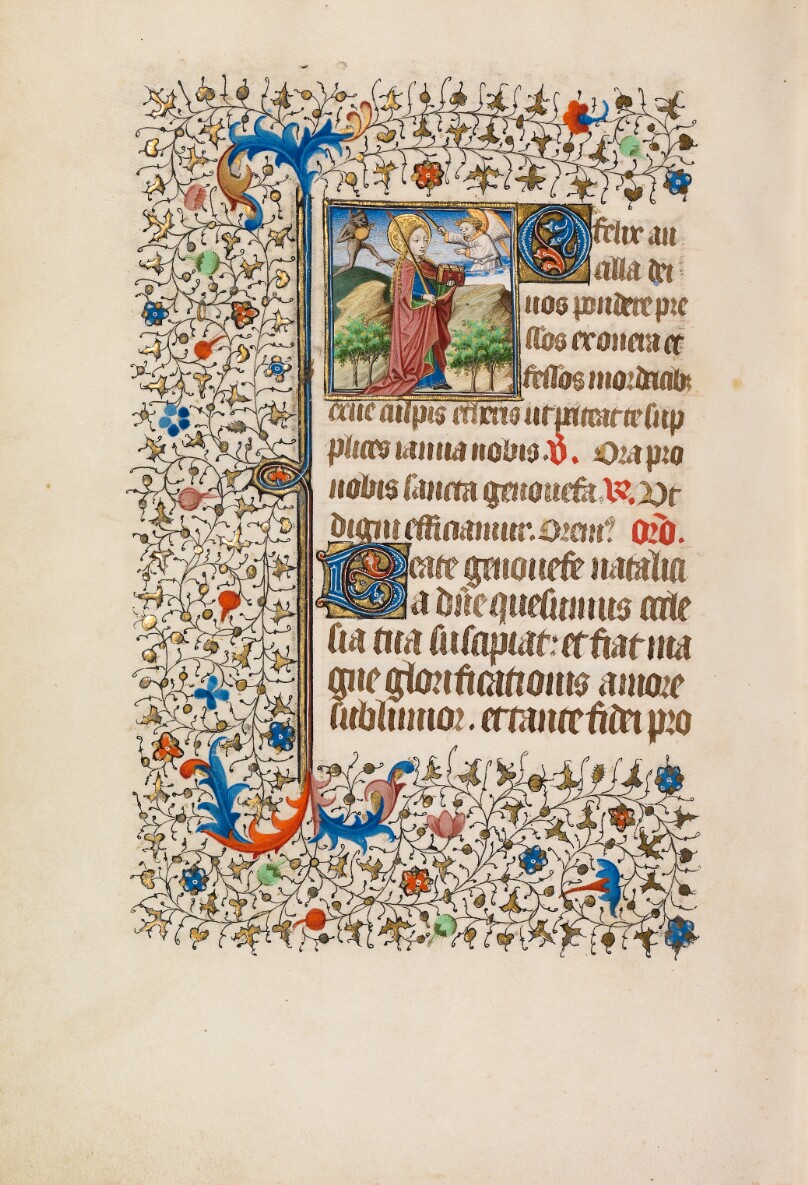 O felix an
cilla dei
nos pondere pre
ssos exonera et
fessos mordacib᷒
exue culpis etheris ut pateat te sup
plices ianua nobis. V̄. Ora pro
nobis sancta genouefa. R̄. Vt
digni efficiamur. Orem᷒ orō.
Beate genouefe natalici
a dn̄e quesumus eccle
sia tua suscipiat: et fiat ma
gne glorificationis amore
sublimior. et tante fidei pro